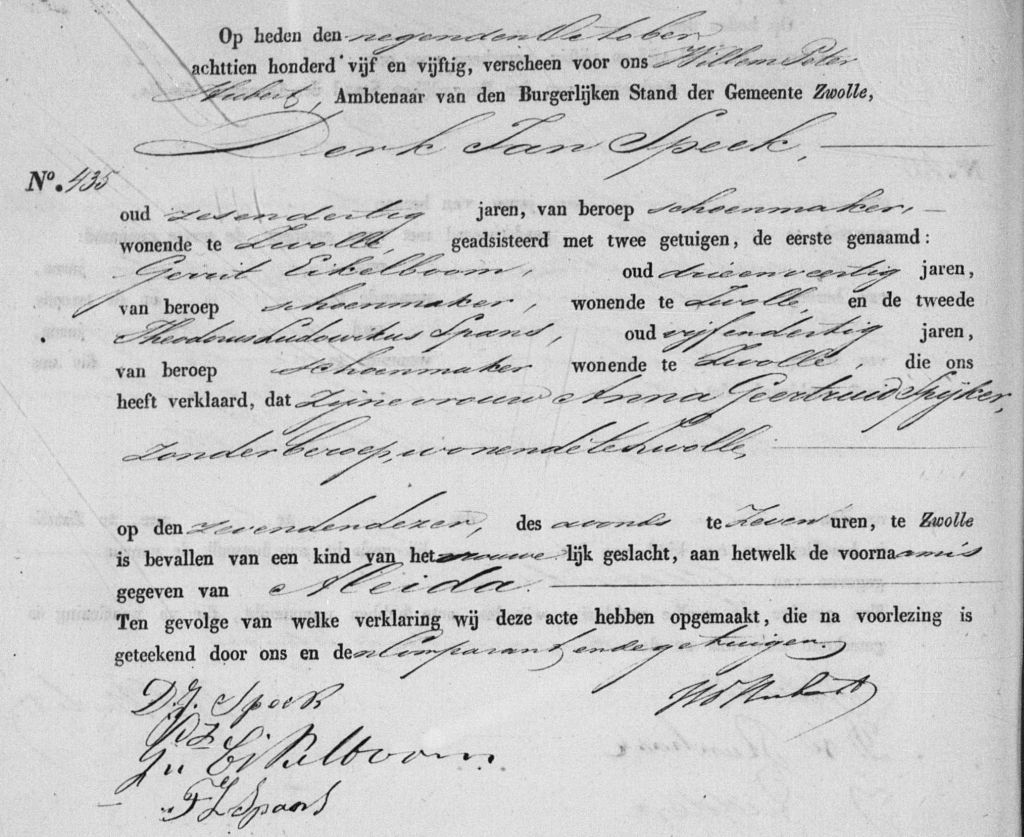 Op heden den negenden October
achttien honderd vijf en vijftig, verscheen voor ons Willem Peter
Hubert, Ambtenaar van den Burgerlijken Stand der Gemeente Zwolle,
Derk Jan Speek,
No. 435
oud zesendertig jaren, van beroep schoenmaker,
wonende te Zwolle geadsisteerd met twee getuigen, de eerste genaamd:
Gerrit Eikelboom, oud drieenveertig jaren,
van beroep schoenmaker, wonende te Zwolle, en de tweede
Theodorus Ludovikus Spans, oud vijfendertig jaren,
van beroep schoenmaker wonende te Zwolle, die ons
heeft verklaard, dat zijne vrouw Anna Geertruid Spijker,
zonder beroep, wonende te Zwolle,
op den zevenden dezer, des avonds te zeven uren, te Zwolle
is bevallen van een kind van het vrouwelijk geslacht, aan hetwelk de voornaam is
gegeven van Aleida.
Ten gevolge van welke verklaring wij deze acte hebben opgemaakt, die na voorlezing is
geteekend door ons en den Comparant en de getuigen.
D.J. Speek
WP Hubert
Eikelboom
T L Spans